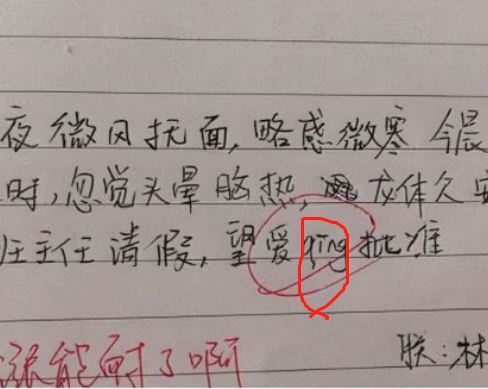 夜微风抚面,略感微寒 今晨
时,忽觉头晕脑热,龙体久安
任主任请假,望爱qing批准
能耐了啊
朕:林